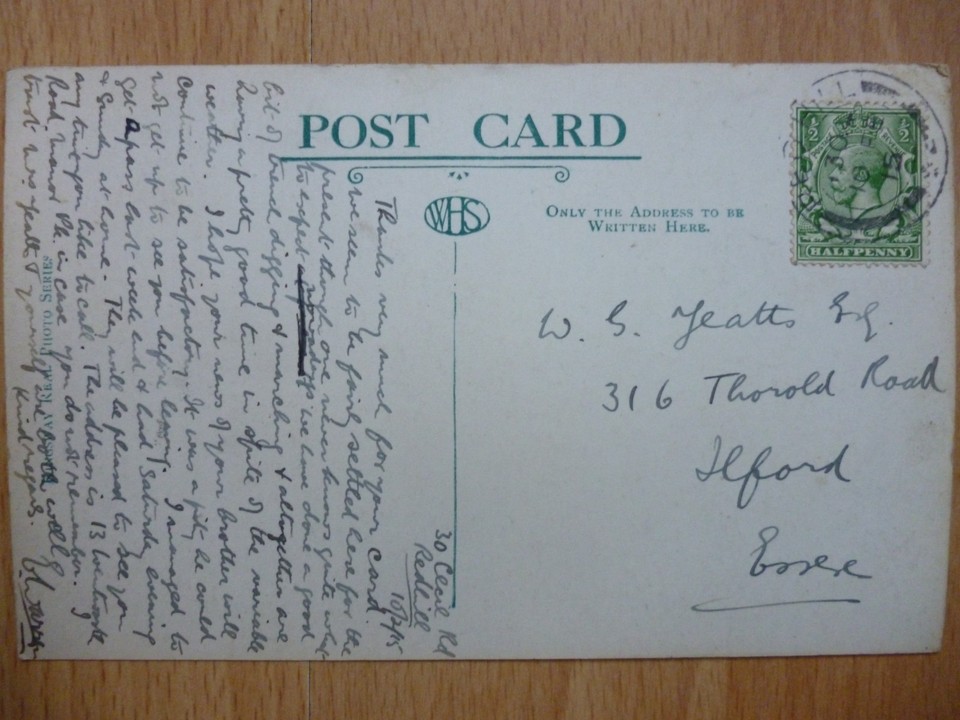 POST CARD
WHS
ONLY THE ADDRESS TO BE
WRITTEN HERE.
½ ½
HALFPENNY
W. G. Yeatts Esq.
316 Thorold Road
Ilford
Essex
30 Cecil Rd
Redhill
10/2/15
Thanks very much for your card.
We seem to be fairly settled here for the
present though one never knows quite what
to expect we have done a good
bit of trench digging & marching & altogether are
having a pretty good time in spite of the variable
weather. I hope your news of your brother will
continue to be satisfactory. It was a pity he could
not get up to see you before leaving. I managed to
get a pass last week end & had Saturday evening
& Sunday at home. They will be pleased to see you
any time you like to call. The address is 13
Road, Manor Pk. in case you do not remember. I
trust Mrs Yeatts & yourself are both well
Kind regards.
REAL PHOTO SERIES